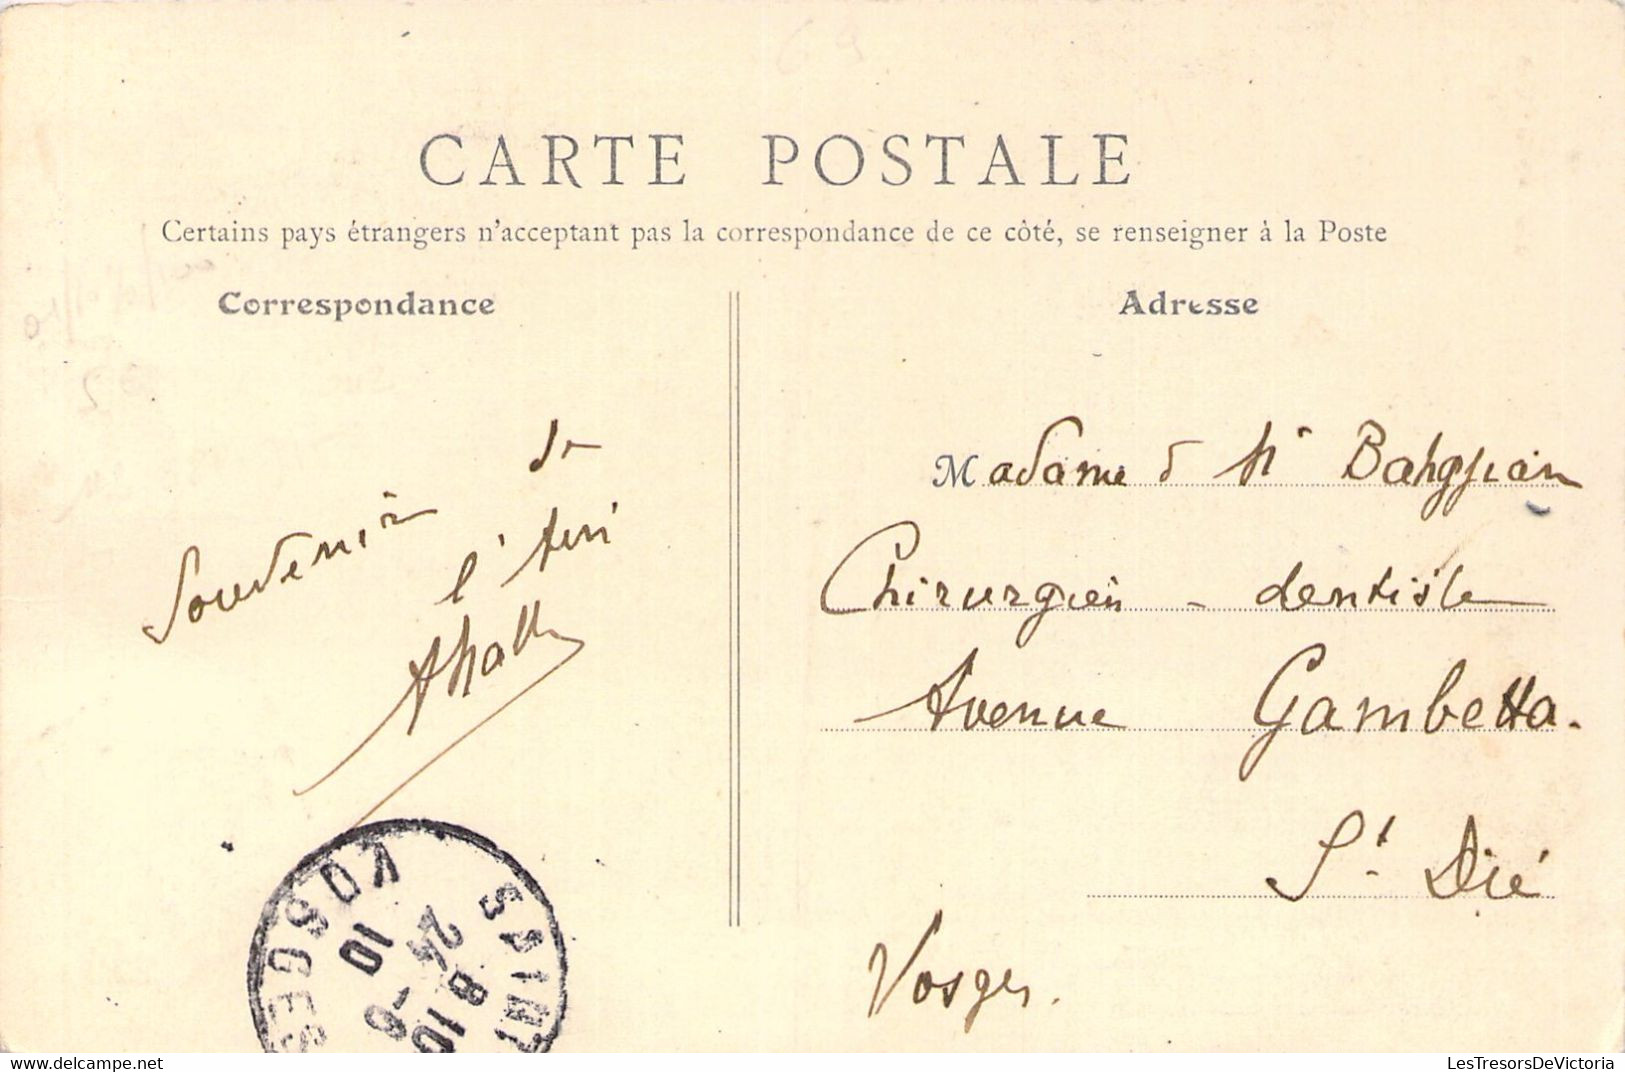 CARTE POSTALE
Certains pays étrangers n'acceptant pas la correspondance de ce côté, se renseigner à la Poste
Correspondance
Souvenir de
l'Ami
Adresse
Madame & Mr
Chirurgien - dentiste
Avenue Gambetta.
St. Dié
Vosges.
SAINT
VOSGES
8 10
24 - 6
10
LesTresorsDeVictoria